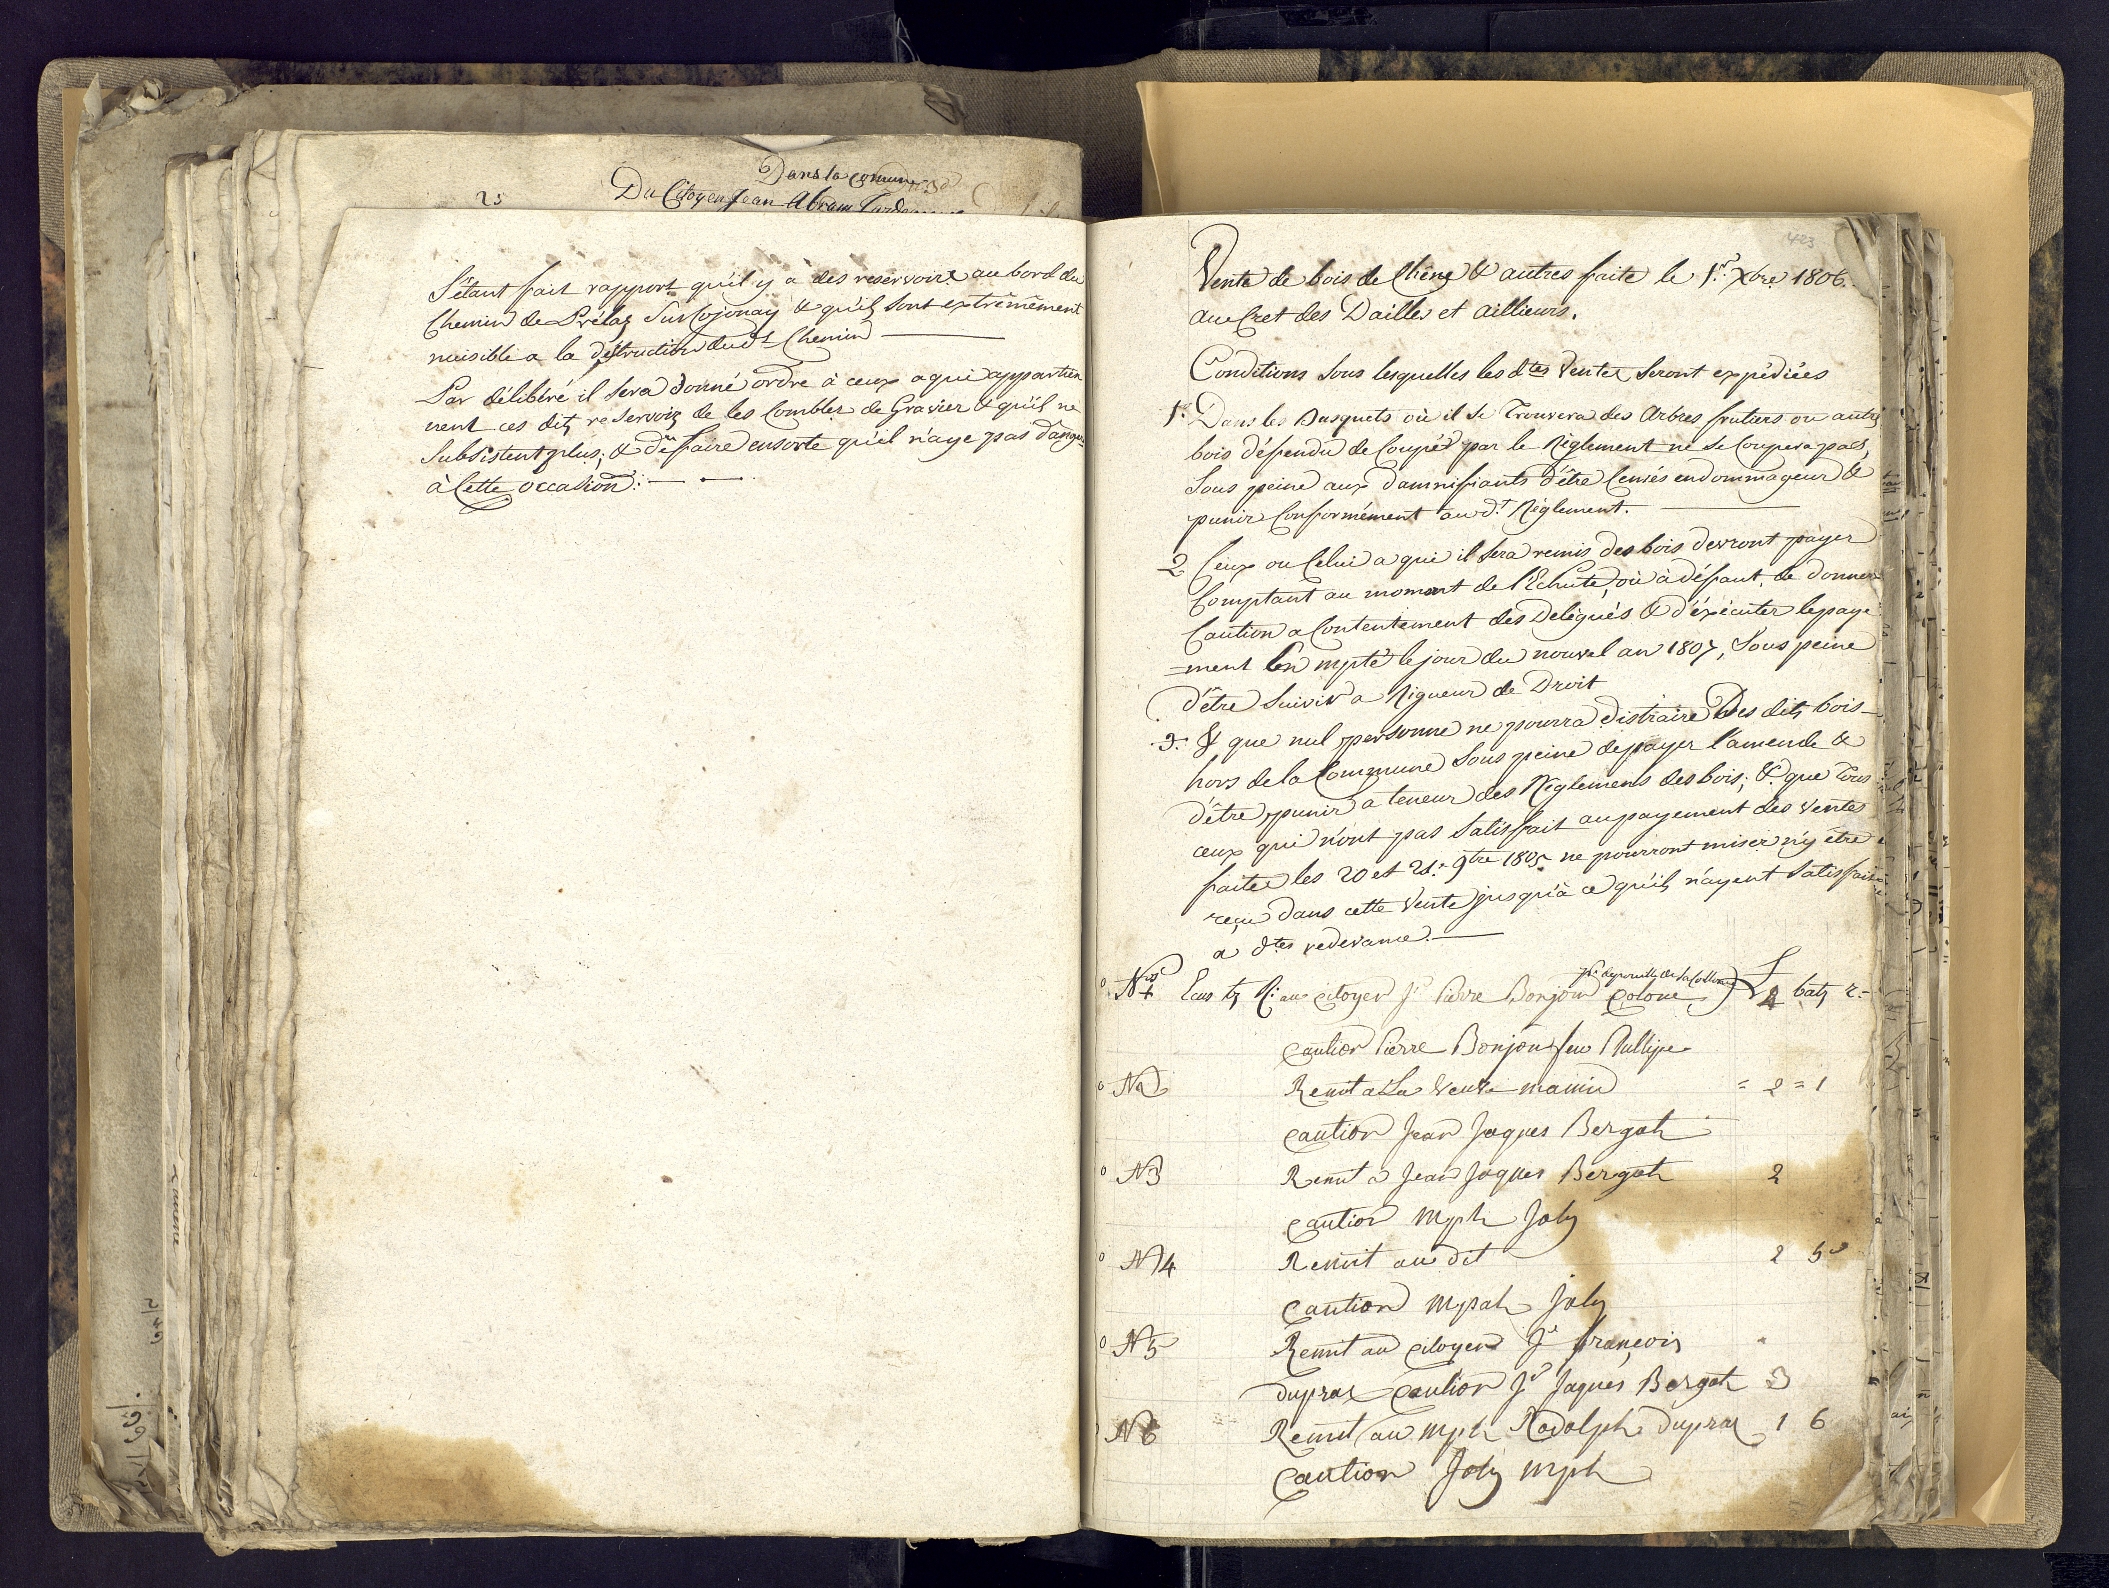 Dans la comune
25 Du Citoyen Jean Abram
S'étant fait rapport qu'il y a des reservoirs au bord du
Chemin de Prélaz Sur Cojonay & qu'ils sont extrêmement
nuisible a la déstruction dud.t Chemin
Par délibéré il sera donné ordre à ceux a qui appartien
nent ces dits reservoirs de les Combler de Gravier & qu'il ne
Subsistent plus; & d'en faire ensorte qu'il n'aye pas
à Cette occasion:
423
Vente de bois de Chêne & autres faite le 1.er Xbre 1806.
au Cret des Dailles et aillieurs.
Conditions sous lesquelles les d.tes Ventes seront expédiées
1.o Dans les Busquets où il se Trouvera des Arbres frutiers ou autres
bois défendu de Coupér par le Règlement ne se Coupera pas,
Sous peine aux damnifiants d'être Censés endommageur &
punir Conformément au d.t Règlement.
2 Ceux ou Celui a qui il sera remis des bois devront pàyer
Comptant au moment de l'Echute, où à défaut, de donner
Caution a Contentement des Delégués & d'éxécuter lepaye
=ment le jour du nouvel an 1807, Sous peine
d'être Suivis a Rigueur de Droit
3. & que nul personne ne pourra distraire Des dits bois
hors de la Commune Sous peine depayer l'amende &
d'être punir a teneur des Réglemens des bois; & que Tous
ceux qui n'ont pas Satisfait au payement des Ventes
faites les 20 et 21.e 9bre 1805 ne pourront miser n'y être
reçu dans cette Vente jusqu'à ce qu'ils n'ayent Satisfait
a d.tes redevance.
N.o 1 au citoyen J.n Pierre Bonjour L 4 batz 2=
caution Pierre Bonjour feu Phillipe
N2 Remit a La Veuve = 2 = 1
caution Jean Jaques Bergat
N3 Remit a Jean Jaques Bergat 2
caution Mpl Joly
N4 Remit au dit 2 5
Caution Joly
N5 Remit au citoyen J.n françois
dupraz caution J.n Jaques Bergat 3
N6 Remit au Mpl Rodolph dupraz 1 6
Caution Joly Mpl